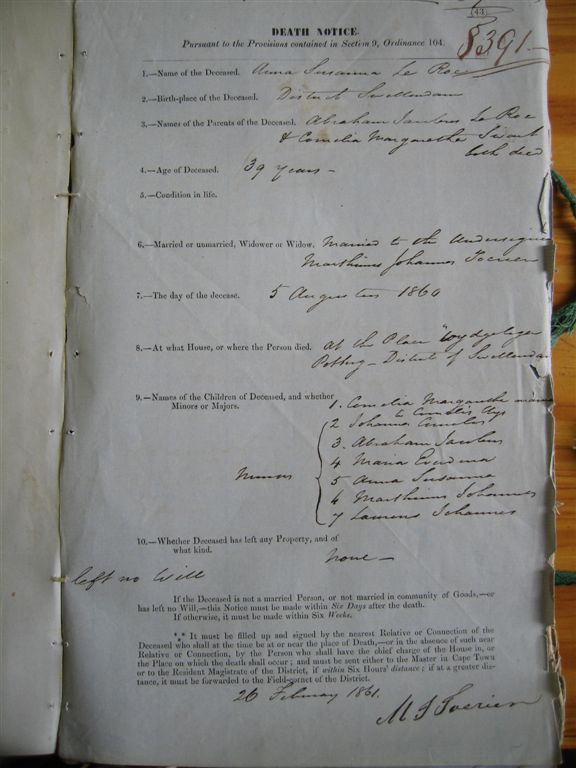 (43)
DEATH NOTICE.
8391
Pursuant to the Provisions contained in Section 9, Ordinance 104.
1.—Name of the Deceased. Anna Susanna Le Roe
2.—Birth-place of the Deceased. District Swellendam
3.—Names of the Parents of the Deceased. Abraham Jacobus Le Roe
& Cornelia Margaretha
both died
4.—Age of Deceased. 39 years —
5.—Condition in life.
6.—Married or unmarried, Widower or Widow. Married to the Undersigned
Marthinus Johannes
7.—The day of the decease. 5 Augustus 1860
8.—At what House, or where the Person died. at the Place
Potberg – District of Swellendam
9.—Names of the Children of Deceased, and whether
Minors or Majors.
1. Cornelia Margaretha married
to
2 Johanna
3. Abraham Jacobus
4 Maria
Minors
5 Anna Susanna
6 Marthinus Johannes
7 Laurens Johannes
10.—Whether Deceased has left any Property, and of
what kind.
None —
left no Will
If the Deceased is not a married Person, or not married in community of Goods,—or
has left no Will,—this Notice must be made within Six Days after the death.
If otherwise, it must be made within Six Weeks.
*** It must be filled up and signed by the nearest Relative or Connection of the
Deceased who shall at the time be at or near the place of Death,—or in the absence of such near
Relative or Connection, by the Person who shall have the chief charge of the House in, or
the Place on which the death shall occur; and must be sent either to the Master in Cape Town
or to the Resident Magistrate of the District, if within Six Hours' distance; if at a greater dis-
tance, it must be forwarded to the Field-cornet of the District.
26 February 1861.
M J